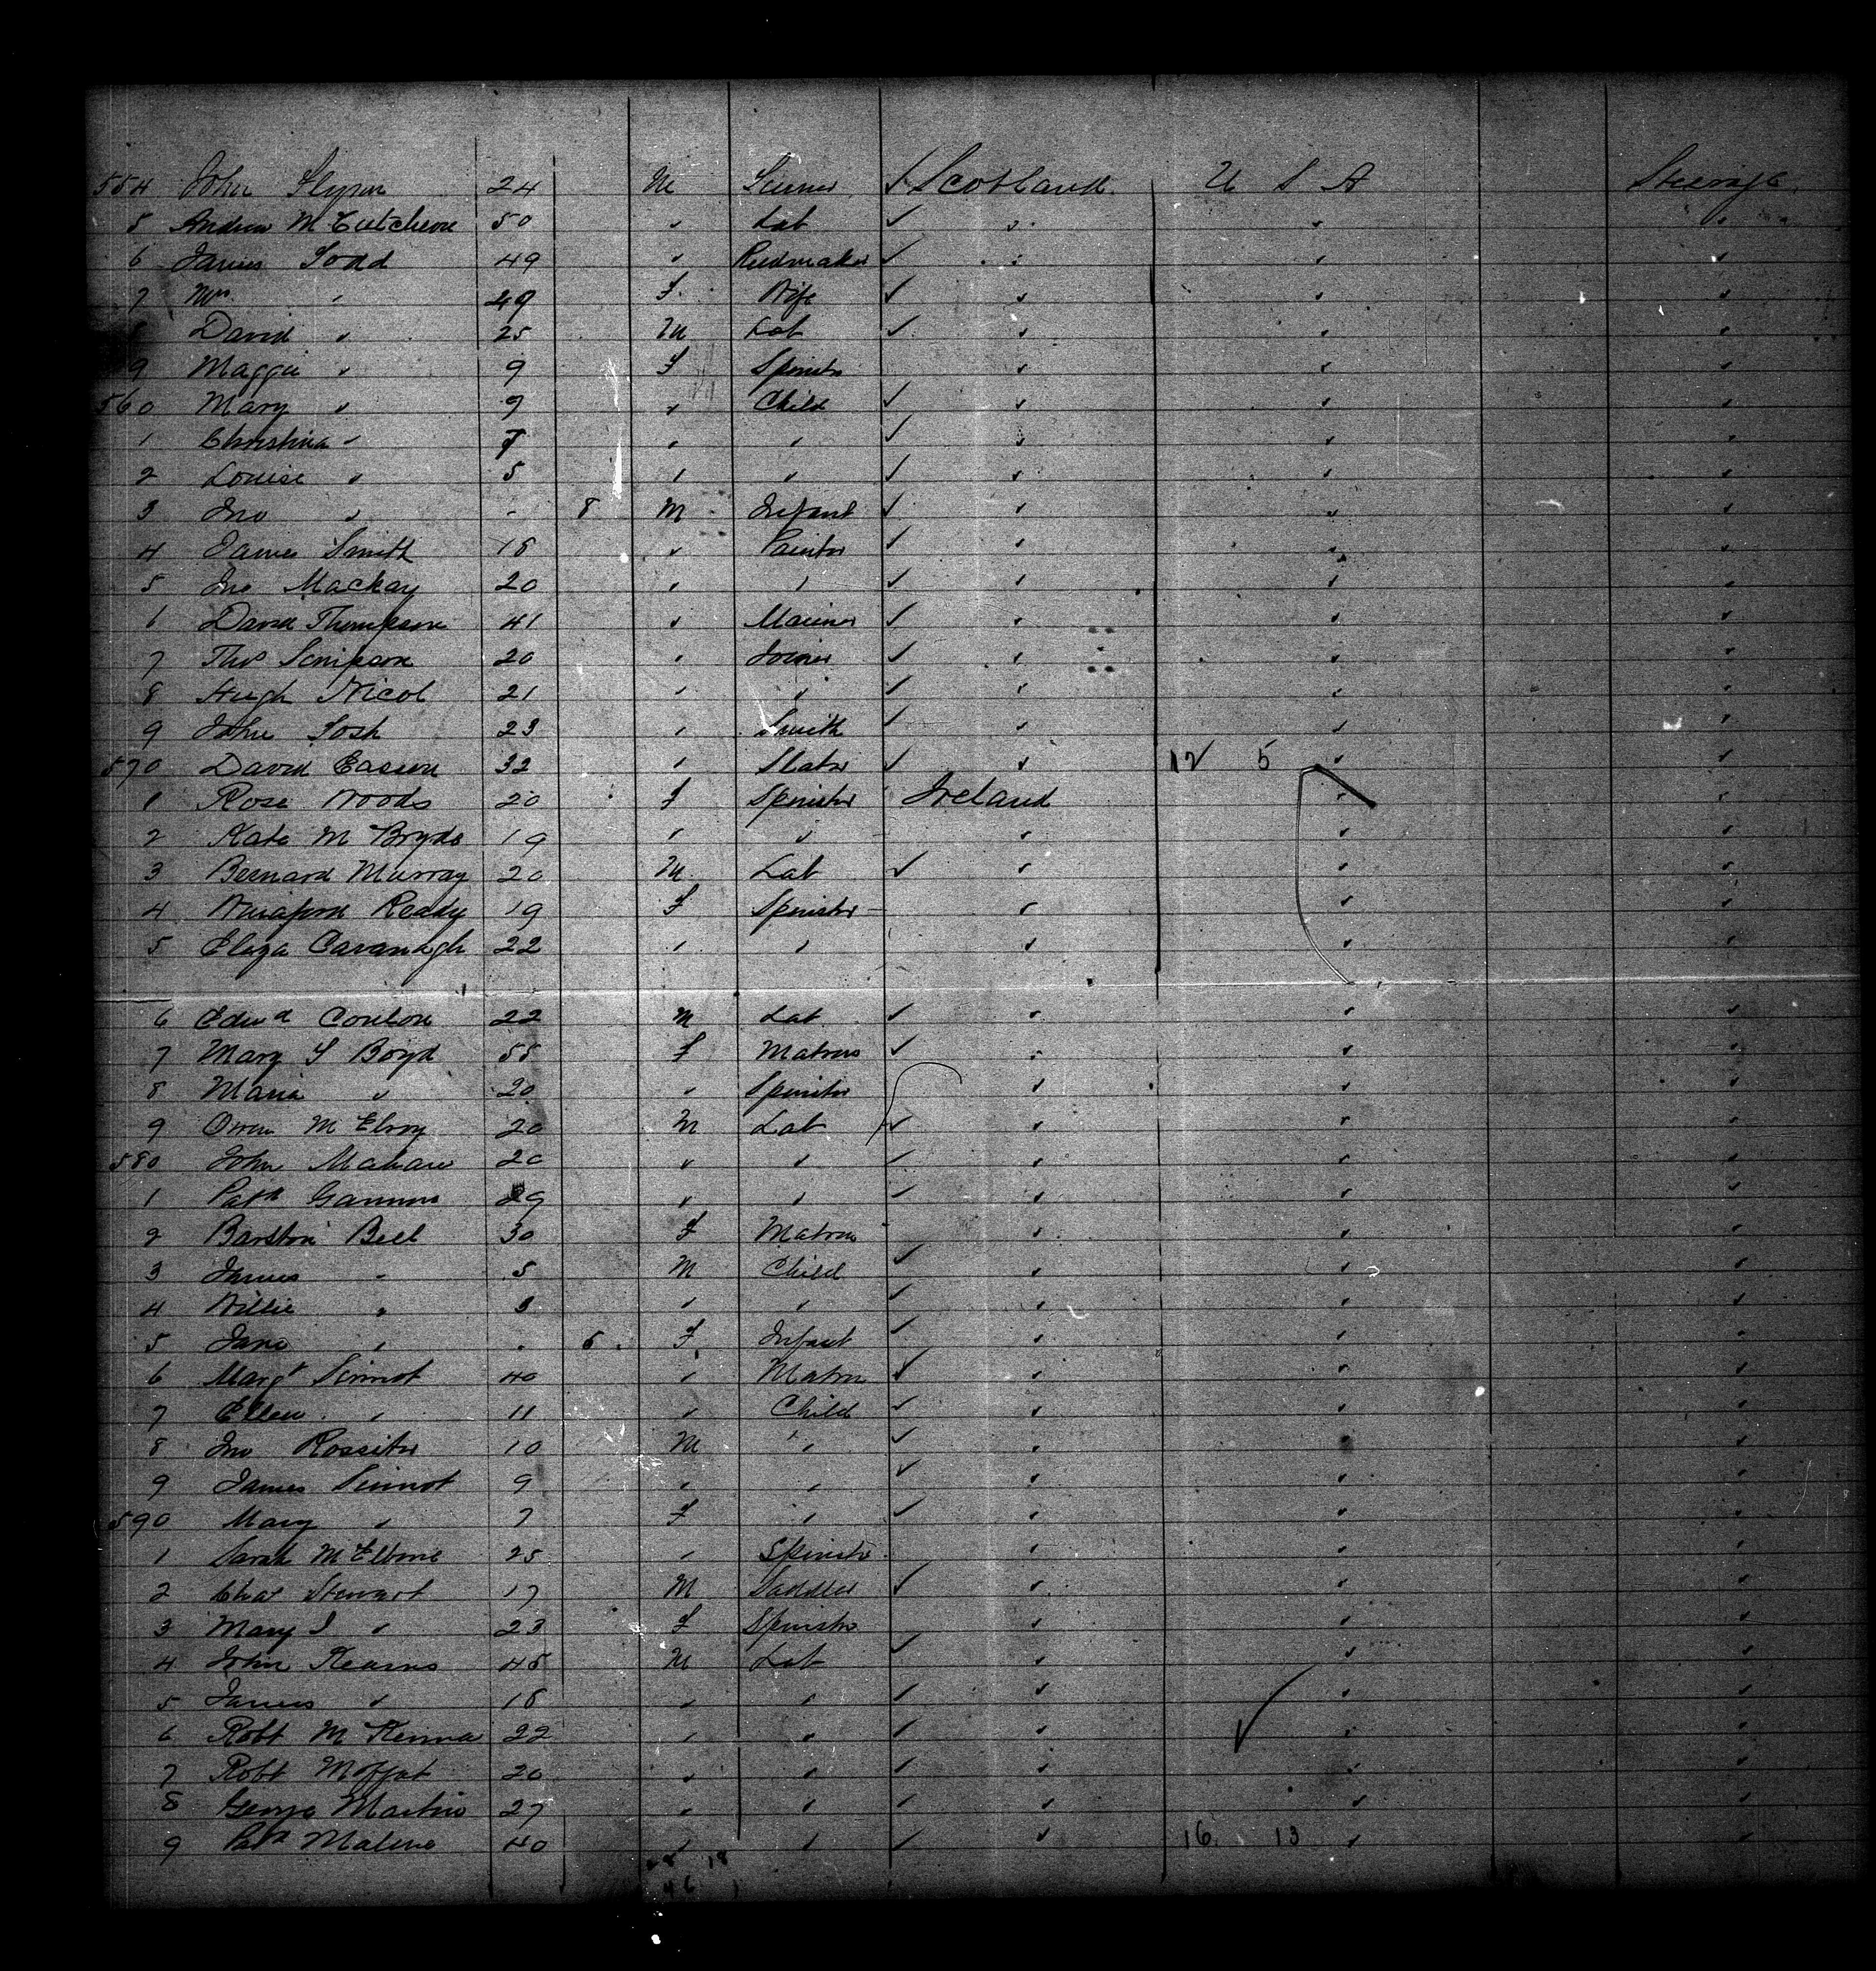 554 John 24 M Scotland U S A Steerage
5 Andrew McCutcheon 50 " Lab " " "
6 James Todd 49 " Reedmaker " " "
7 Mrs " 49 F Wife " " "
8 David " 25 M Lab " " "
9 Maggie " 9 F Spinster " " "
560 Mary " 9 " Child " " "
1 Christina " 7 " " " " "
2 Louise " 5 " " " " "
3 Jno " - 8 M Infant " " "
4 James Smith 18 " Painter " " "
5 Jno Mackay 20 " " " " "
6 David Thompson 41 " Mariner " " "
7 Thos Simpson 20 " Joiner " " "
8 Hugh Nicol 21 " " " " "
9 John Tosh 23 " Smith " " "
570 David Easson 32 " Slater " 12 5 " "
1 Rose Woods 20 F Spinster Ireland " "
2 Kate McBryde 19 " " " " "
3 Bernard Murray 20 M Lab " " "
4 Ready 19 F Spinster " " "
5 Eliza Cavanagh 22 " " " " "
6 Edwd Conlon 22 M Lab " " "
7 Mary Boyd 55 F Matron " " "
8 Maria " 20 " Spinster " " "
9 Owen McElroy 20 M Lab " " "
580 John 20 " " " " "
1 Patk Gannon 29 " " " " "
2 Bell 30 F Matron " " "
3 James " 5 M Child " " "
4 Willie " 3 " " " " "
5 Jane " - 6 F Infant " " "
6 Margt Sinnot 40 " Matron " " "
7 Ellen " 11 " Child " " "
8 Jno Rossiter 10 M " " " "
9 James Sinnot 9 " " " " "
590 Mary " 7 F " " " "
1 Sarah 25 " Spinster " " "
2 Chas Stewart 17 M Saddler " " "
3 Mary J " 23 F Spinster " " "
4 John Kearns 45 M Lab " " "
5 James " 18 " " " " "
6 Robt McKenna 22 " " " " "
7 Robt Moffat 20 " " " " "
8 George Martin 27 " " " " "
9 Patk Malone 40 " " " 16 13 " "